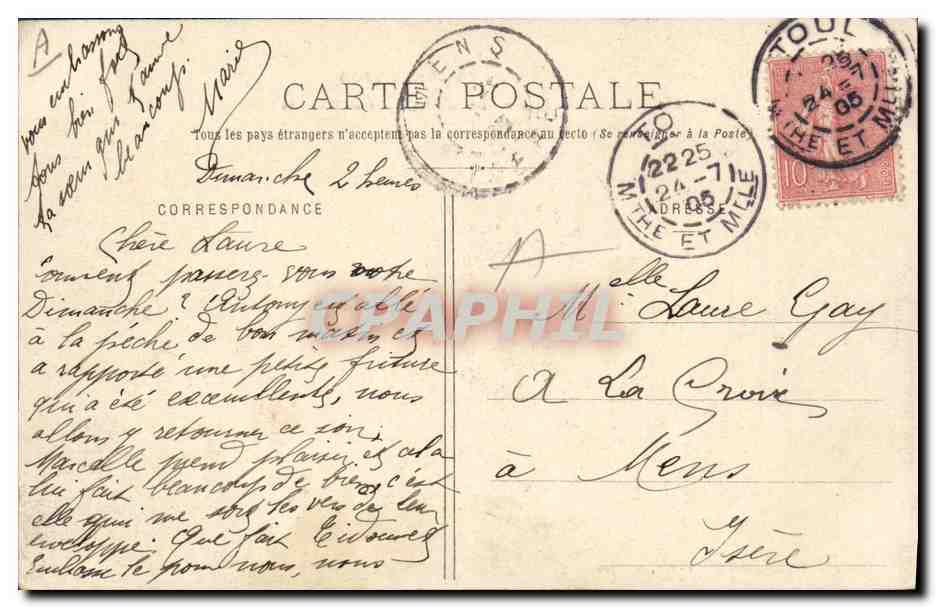 A
vous embrassons
tous bien fort
ta sœur qui t'aime
beaucoup.
Marie
CARTE POSTALE
Tous les pays étrangers n'acceptent pas la correspondance au recto (Se renseigner à la Poste)
MENS
TOUL
22 25
24 -7
05
MTHE ET MLLE
TOUL
25
24
05
MTHE ET MLLE
10
Dimanche 2 heures
CORRESPONDANCE
ADRESSE
Chère Laure
Comment passerez-vous votre
Dimanche? Antony est allé
à la pêche de bon matin et
a rapporté une petite friture
qui a été excellente, nous
allons y retourner ce soir.
Marcelle prend plaisir et cela
lui fait beaucoup de bien c'est
elle qui me sort les vers de leur
enveloppe. Que fait
Embrasse le pour nous, nous
A
Melle Laure Gay
A La Croix
à Mens
Isère
CPAPHIL